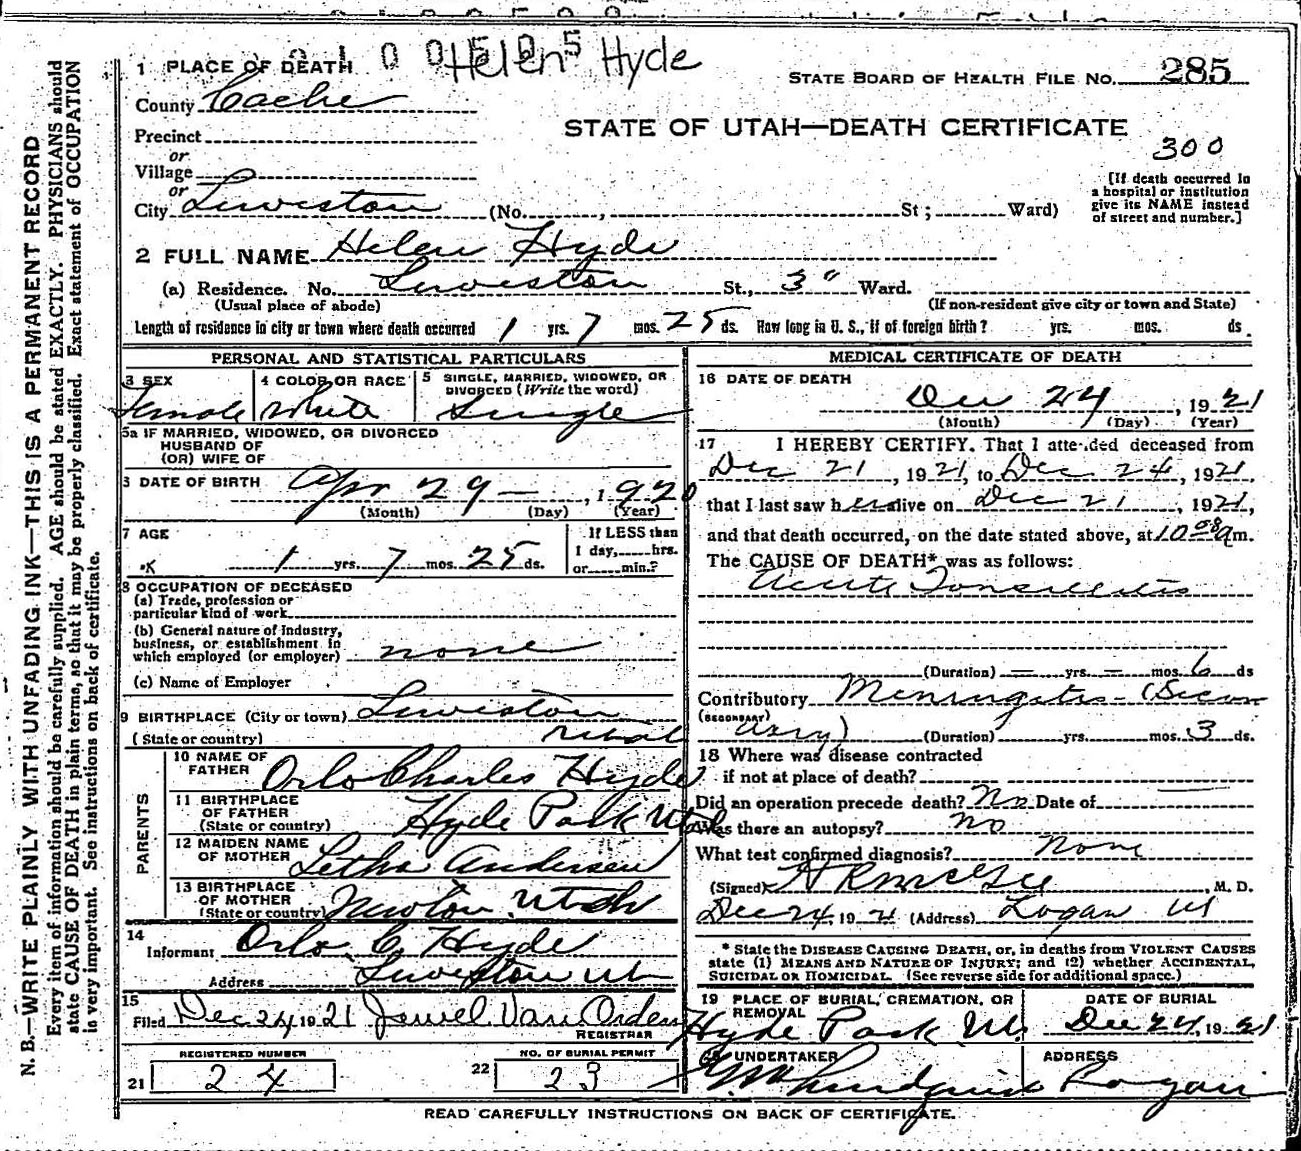 2100505 Helen Hyde
1 PLACE OF DEATH
STATE BOARD OF HEALTH FILE NO. 285
County Cache
STATE OF UTAH—DEATH CERTIFICATE
Precinct
300
or
Village
or
City Lewiston (No. , St; Ward)
[If death occurred in a hospital or institution give its NAME instead of street and number.]
2 FULL NAME Helen Hyde
(a) Residence. No. Lewiston St., 3" Ward.
(Usual place of abode) (If non-resident give city or town and State)
Length of residence in city or town where death occurred 1 yrs. 7 mos. 25 ds. How long in U. S., if of foreign birth? yrs. mos. ds.
PERSONAL AND STATISTICAL PARTICULARS
3 SEX Female
4 COLOR OR RACE White
5 SINGLE, MARRIED, WIDOWED, OR DIVORCED (Write the word) Single
5a IF MARRIED, WIDOWED, OR DIVORCED
HUSBAND OF
(OR) WIFE OF
DATE OF BIRTH Apr 29 — , 1920
(Month) (Day) (Year)
7 AGE
If LESS than
1 day, hrs.
or min.?
1 yrs. 7 mos. 25 ds.
8 OCCUPATION OF DECEASED
(a) Trade, profession or
particular kind of work
(b) General nature of industry,
business, or establishment in
which employed (or employer) none
(c) Name of Employer
9 BIRTHPLACE (City or town) Lewiston
(State or country) Utah
PARENTS
10 NAME OF FATHER Orlo Charles Hyde
11 BIRTHPLACE OF FATHER (State or country) Hyde Park Utah
12 MAIDEN NAME OF MOTHER Letha Andersen
13 BIRTHPLACE OF MOTHER (State or country) Newton Utah
14
Informant Orlo C. Hyde
Address Lewiston Ut
15
Filed Dec 24 1921 Jewel Van Orden
REGISTRAR
REGISTERED NUMBER
21 24
NO. OF BURIAL PERMIT
22 23
MEDICAL CERTIFICATE OF DEATH
16 DATE OF DEATH
Dec 24 , 1921
(Month) (Day) (Year)
17 I HEREBY CERTIFY. That I attended deceased from
Dec 21 , 1921, to Dec 24 , 1921
that I last saw her alive on Dec 21 , 1921,
and that death occurred, on the date stated above, at 10 am.
The CAUSE OF DEATH* was as follows:
Acute Tonsillitis
(Duration) — yrs. — mos. 6 ds
Contributory Meningitis - (Secon
(SECONDARY) dary) (Duration) yrs. mos. 3 ds.
18 Where was disease contracted
if not at place of death?
Did an operation precede death? No Date of
Was there an autopsy? no
What test confirmed diagnosis? None
(Signed) M. D.
Dec 24, 1921 (Address) Logan Ut
* State the DISEASE CAUSING DEATH, or, in deaths from VIOLENT CAUSES
state (1) MEANS AND NATURE OF INJURY; and (2) whether ACCIDENTAL,
SUICIDAL OR HOMICIDAL. (See reverse side for additional space.)
19 PLACE OF BURIAL, CREMATION, OR REMOVAL Hyde Park Ut.
DATE OF BURIAL Dec 24, 1921
UNDERTAKER
ADDRESS Logan
READ CAREFULLY INSTRUCTIONS ON BACK OF CERTIFICATE.
N. B.—WRITE PLAINLY WITH UNFADING INK—THIS IS A PERMANENT RECORD
Every item of information should be carefully supplied. AGE should be stated EXACTLY. PHYSICIANS should
state CAUSE OF DEATH in plain terms, so that it may be properly classified. Exact statement of OCCUPATION
is very important. See instructions on back of certificate.